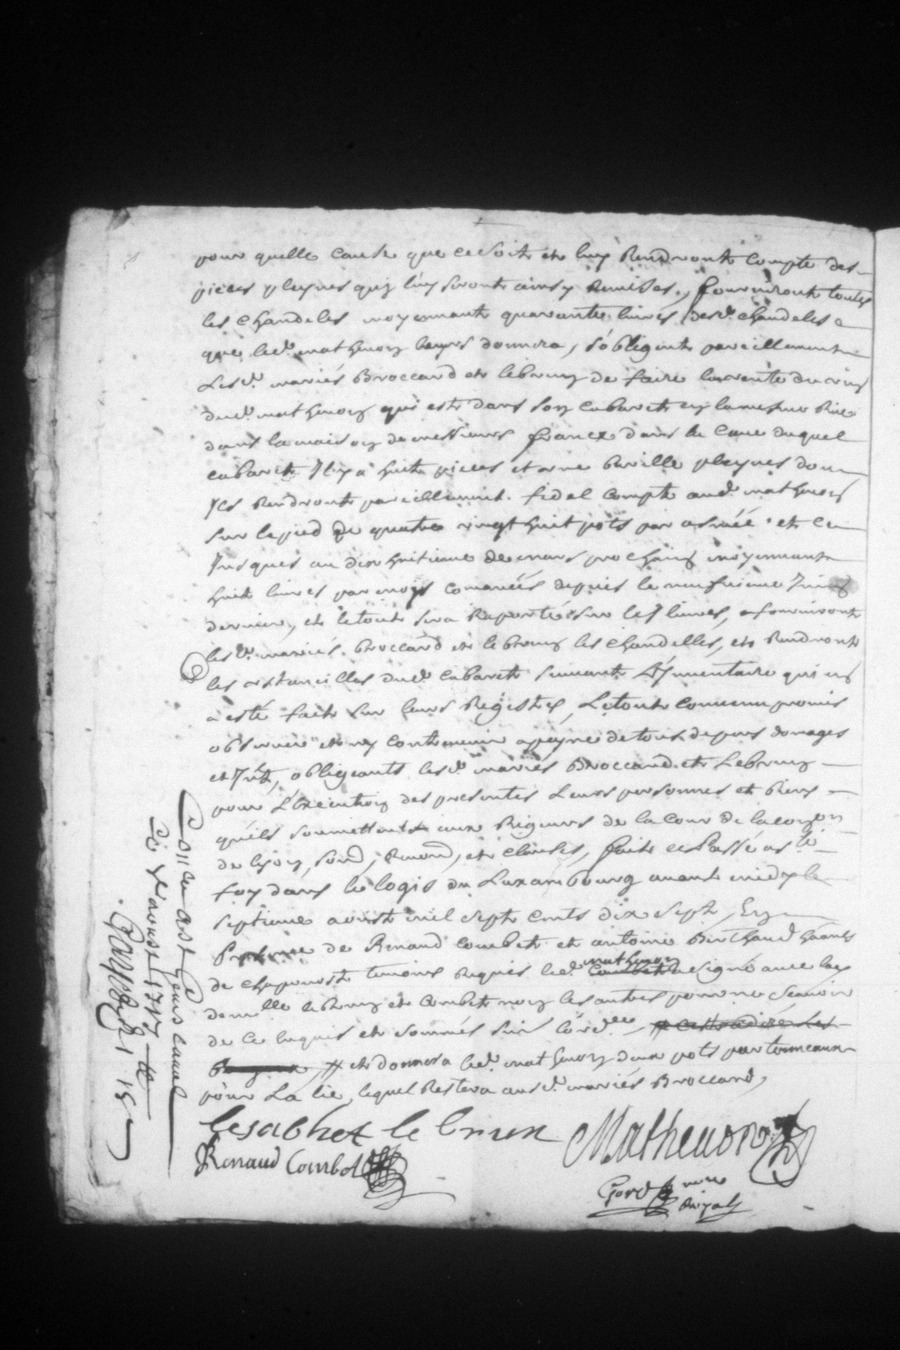 pour quelle cause que ce soit et luy Rendront Compte des
pieces pleynes quy luy seront ainsy Remises, fourniront toutes
les Chandeles moyennant quarante livres desd. chandeles
que led. mathevon leurs donnera, s'obligent pareillement
Lesd. mariés Broccard et lebrun de faire la vente du vin
dud. mathevon qui est dans son cabaret en la mesme Rue
dans la maison de messieurs france dans la Cave duquel
cabaret Il y a huit pieces et une Baville pleynes don
Ils Rendront pareillement fidel Compte aud. mathevon
sur le pied de quatre vingt huit pots par asnéé et ce
Jusques au dix huitieme de mars prochain moyennant
huit livres par moys comancés depuis le neufvieme Juin
dernier, et le tout sera Reporté sur les livres, fourniront
lesd. mariés Broccard et lebrun les chandelles, et Rendront
les ustancilles dud. Cabaret suivant L'Jnventaire qui en
a esté fait sur leurs Registres, Letout comme promis
observer et ny contrevenir a peyne de tous depens domages
et Jnt., obligeants lesd. mariés Broccard et Lebrun
pour L'Execution des presentes Leurs personnes et biens
qu'ils soumettent aux Rigeurs de la Cour de la conson
de lyon, soud, Renond, et clauses, fait et Passé aud.
foy dans le logis du Luxambourg avant midy le
septieme aoust mil sept cents dix sept, En
Presence de Renaud Combet et antoine Berthaud
de chaponost temoins Requis led. mathevon a signé avec lad.
demlle lebrun et Combet non les autres pour ne scavoir
de ce enquis et sommés suiv. l'ordce
# et donnera led. mathevon deux pots par tonneaux
pour La lie, lequel Restera ausd. mariés Broccard,
lesachet le brun Mathevon
Renaud Combet
Gord nore Royal
Conlle a St Genis Laval
Ce 9 aoust 1717